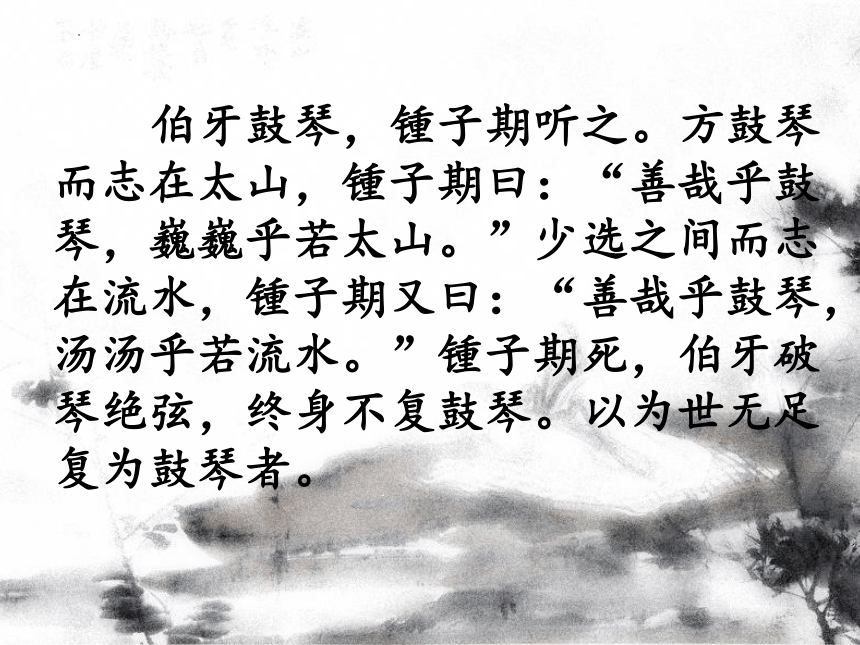 伯牙鼓琴，锺子期听之。方鼓琴
而志在太山，锺子期曰：“善哉乎鼓
琴，巍巍乎若太山。”少选之间而志
在流水，锺子期又曰：“善哉乎鼓琴，
汤汤乎若流水。”锺子期死，伯牙破
琴绝弦，终身不复鼓琴。以为世无足
复为鼓琴者。